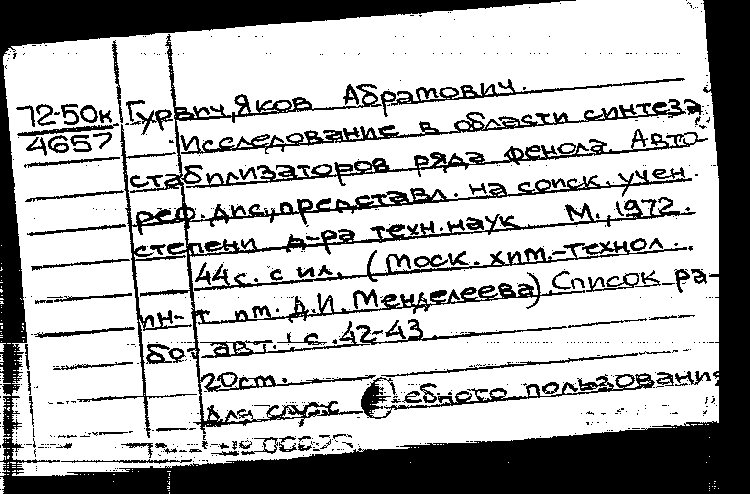 72-50к Гурвич, Яков Абрамович.
4657 Исследование в области синтеза
стабилизаторов ряда фенола. Авто-
реф. дис., представл. на соиск. учен.
степени д-ра техн. наук М., 1972.
44 с. с ил. (Моск. хим.-технол.
ин-т им. Д.И. Менделеева). Список ра-
бот авт.: с. 42-43.
20 см.
Для служебного пользования